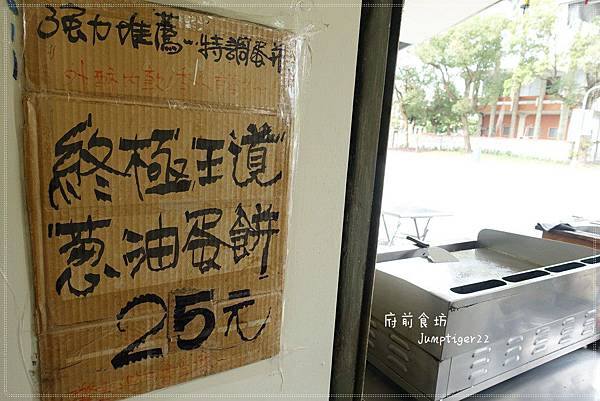 強力推薦~特調蛋餅
外酥內軟
終極王道
蔥油蛋餅
25元
府前食坊
Jumptiger22